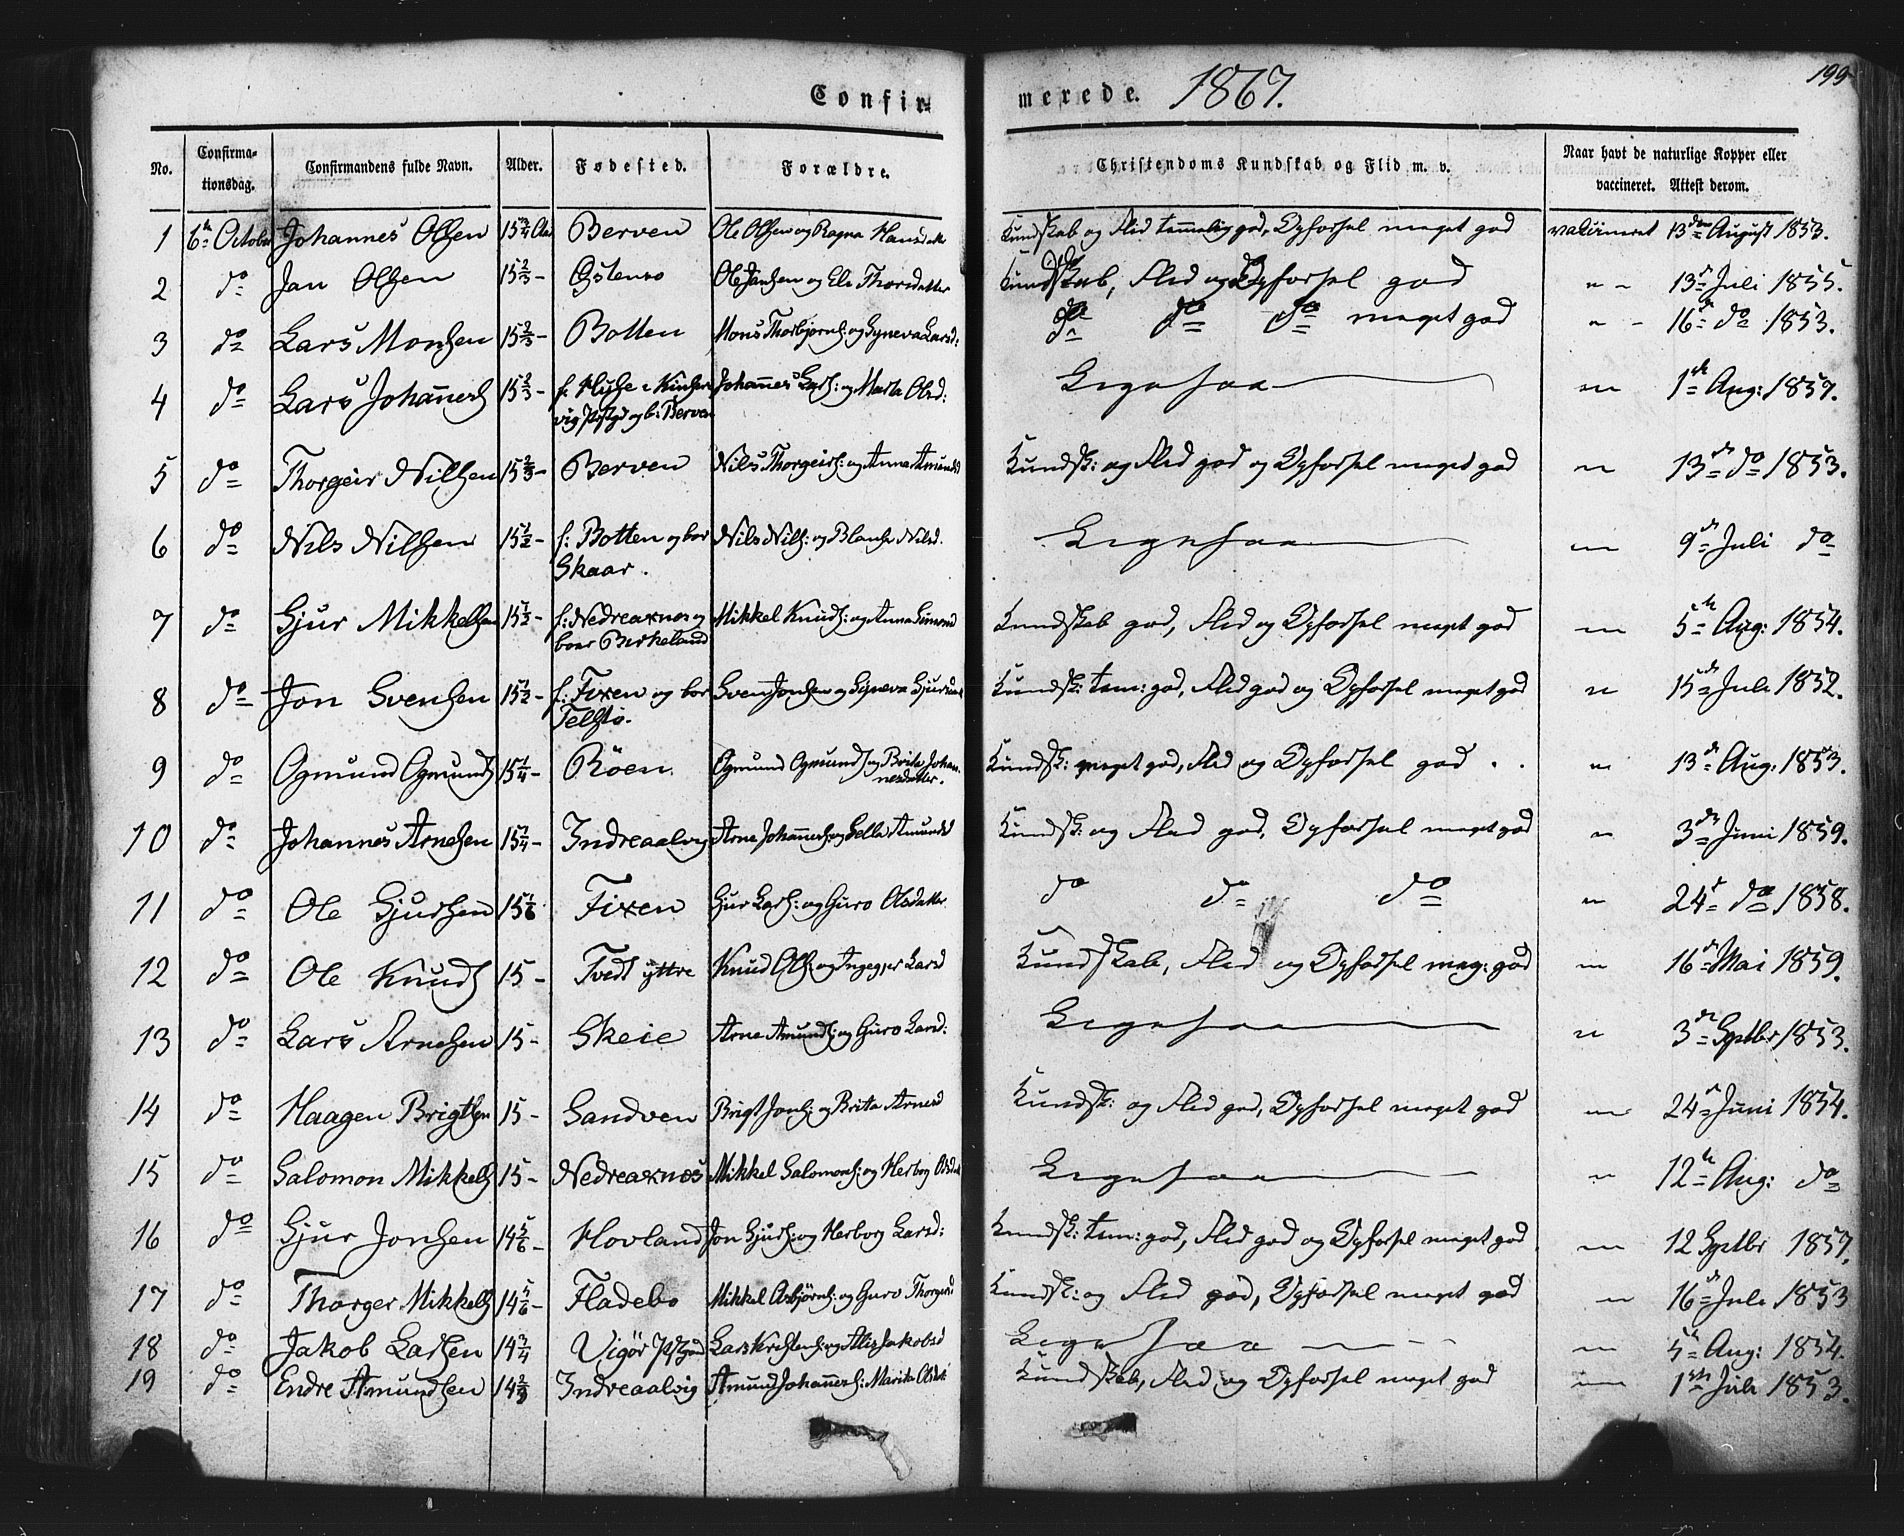 Confir-
merede. 1867.
199
No. Confirma-tionsdag. Confirmandens fulde Navn. Alder. Fødested. Forældre. Christendoms Kundskab og Flid m. v. Naar havt de naturlige Kopper eller vaccineret. Attest derom.
1 6te October Johannes Olssen 15 3/4 Berven Ole Olssen og Ragna Hansdatter Kundskab og Flid temmelig god, Opførsel meget god vakcineret 13de August 1853.
2 do Jan Olssen 15 2/3 - Ole Janssen og Eli Thorsdatter Kundskab, Flid og Opførsel god " - 13de Juli 1855.
3 do Lars Monssen 15 2/3 - Botten Mons Thorbjørns: og Syneva Larsd: do do do meget god " - 16de do 1853.
4 do Lars Johanness 15 2/3 - f: Huse i Kinservig Pstgd og b: Berven Johannes Lars: og Marta Olsd: Ligesaa " 1ste Aug: 1857.
5 do Thorgeir Nilssen 15 2/3 - Berven Nils Thorgeirs: og Anna Amundsd Kundsk: og Flid god og Opførsel meget god " 13de do 1853.
6 do Nils Nilssen 15 1/2 - f: Botten og bor Skaar. Nils Nils: og Nilsd. Ligesaa " 9de Juli do
7 do Gjur Mikkelssen 15 1/2 - f: Nedreaxnes og boer Birkeland Mikkel Knuds: og Anna Kundskab god, Flid og Opførsel meget god " 5te Aug: 1854.
8 do Jon Svenssen 15 1/2 - f: Fixen og bor Telstø. Sven Jonssen og Synneva Gjursd Kundsk: tem: god, Flid god og Opførsel meget god " 15de Juli 1852.
9 do Ogmund Ogmunds 15 1/4 - Röen Ogmund Ogmunds og Brita Johannesdatter. Kundsk: meget god, Flid og Opførsel god . . " 13de Aug: 1853.
10 do Johannes Arnessen 15 1/4 - Indreaalvig Arne Johanness: og Amundsd Kundsk: og Flid god, Opførsel meget god " 3de Juni 1859.
11 do Ole Gjurssen 15 1/6 Fixen Gjur Lars: og Guro Olsdatter do do do " 24de do 1858.
12 do Ole Knuds 15 - Tvedt yttre Knud Ols: og Ingeger Larsd Kundskab, Flid og Opførsel meg: god " 16de Mai 1859.
13 do Lars Arnessen 15 - Skeie Arne Amunds: og Guro Larsd: Ligesaa " 3de Septbr 1853.
14 do Haagen Brigtssen 15 - Sandven Brigt Jons: og Brita Arnesd Kundsk: og Flid god, Opførsel meget god " 24de Juni 1854.
15 do Salomon Mikkels 15 - Nedreaxnes Mikkel Salomons: og Herbog Olsdat Ligesaa " 12te Aug: do
16 do Gjur Jonssen 14 5/6 - Hovland Jon Gjurs: og Herborg Larsd: Kundsk: tem: god, Flid god og Opførsel meget god " 12 Septbr 1857.
17 do Thorger Mikkels 14 5/6 - Fladebø Mikkel Asbjørns: og Guro Thorgersd Kundsk: og Flid god, Opførsel meget god " 16de Juli 1853
18 do Jakob Larssen 14 3/4 Vigör Pstgjeld Lars og Jakobsd Ligesaa " 5te Aug: 1854.
19 do Endre Amundssen 14 2/3 Indreaalvig Amund Johanness: Marita Olsdat Kundskab, Flid og Opførsel meget god " 1ste Juli 1853.